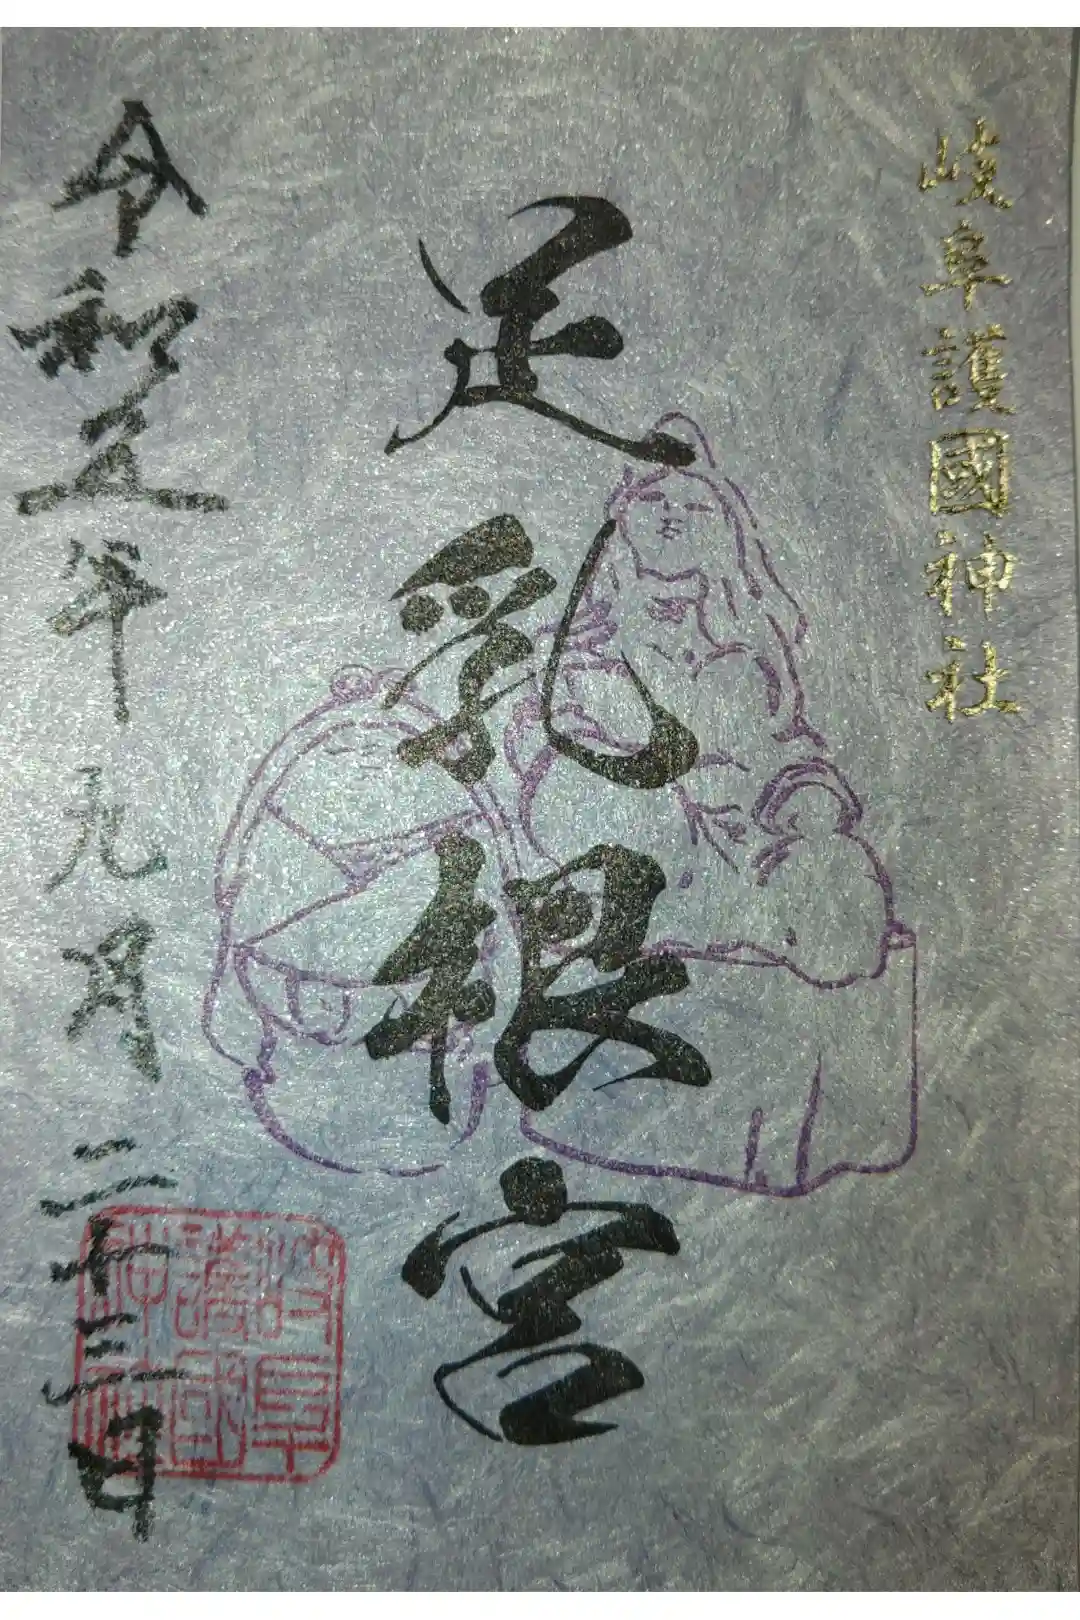 岐阜護國神社
足乳根宮
令和五年九月二十三日
岐阜護國神社